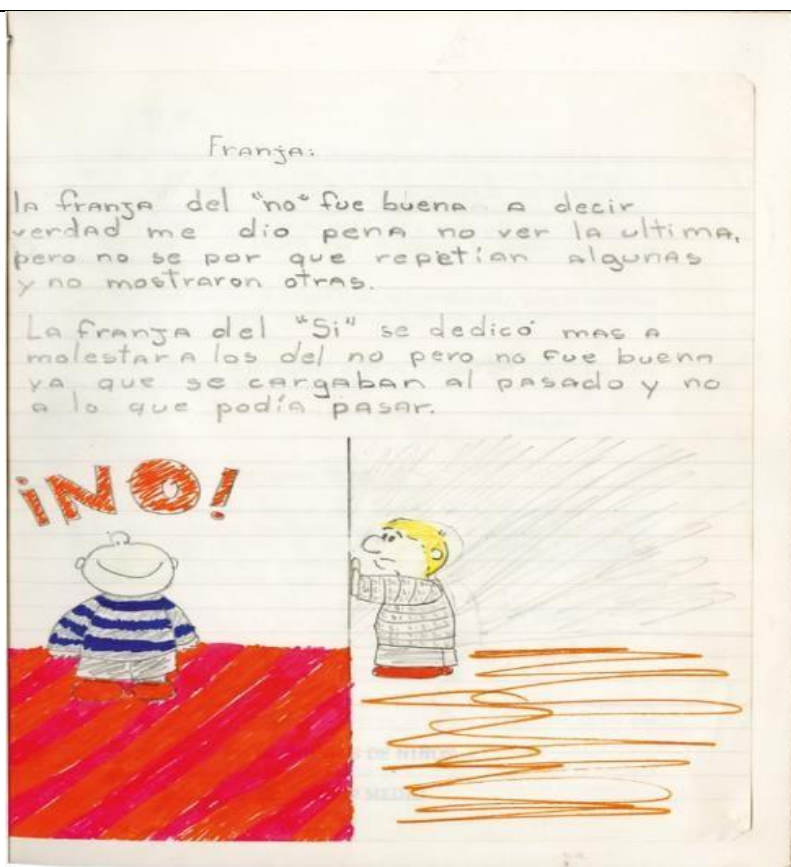 Franja:
la franja del "no" fue buena a decir
verdad me dio pena no ver la ultima,
pero no se por que repetían algunas
y no mostraron otras.
La franja del "Si" se dedicó mas a
molestar a los del no pero no fue buena
ya que se cargaban al pasado y no
a lo que podía pasar.
¡NO!
DE NIÑOS
MEDI